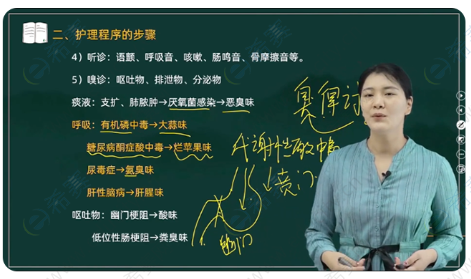 二、护理程序的步骤
4）听诊：语颤、呼吸音、咳嗽、肠鸣音、骨摩擦音等。
5）嗅诊：呕吐物、排泄物、分泌物
痰液：支扩、肺脓肿→厌氧菌感染→恶臭味
呼吸：有机磷中毒→大蒜味
糖尿病酮症酸中毒→烂苹果味
尿毒症→氨臭味
肝性脑病→肝腥味
呕吐物：幽门梗阻→酸味
低位性肠梗阻→粪臭味
代谢性碱中毒
贲门
幽门